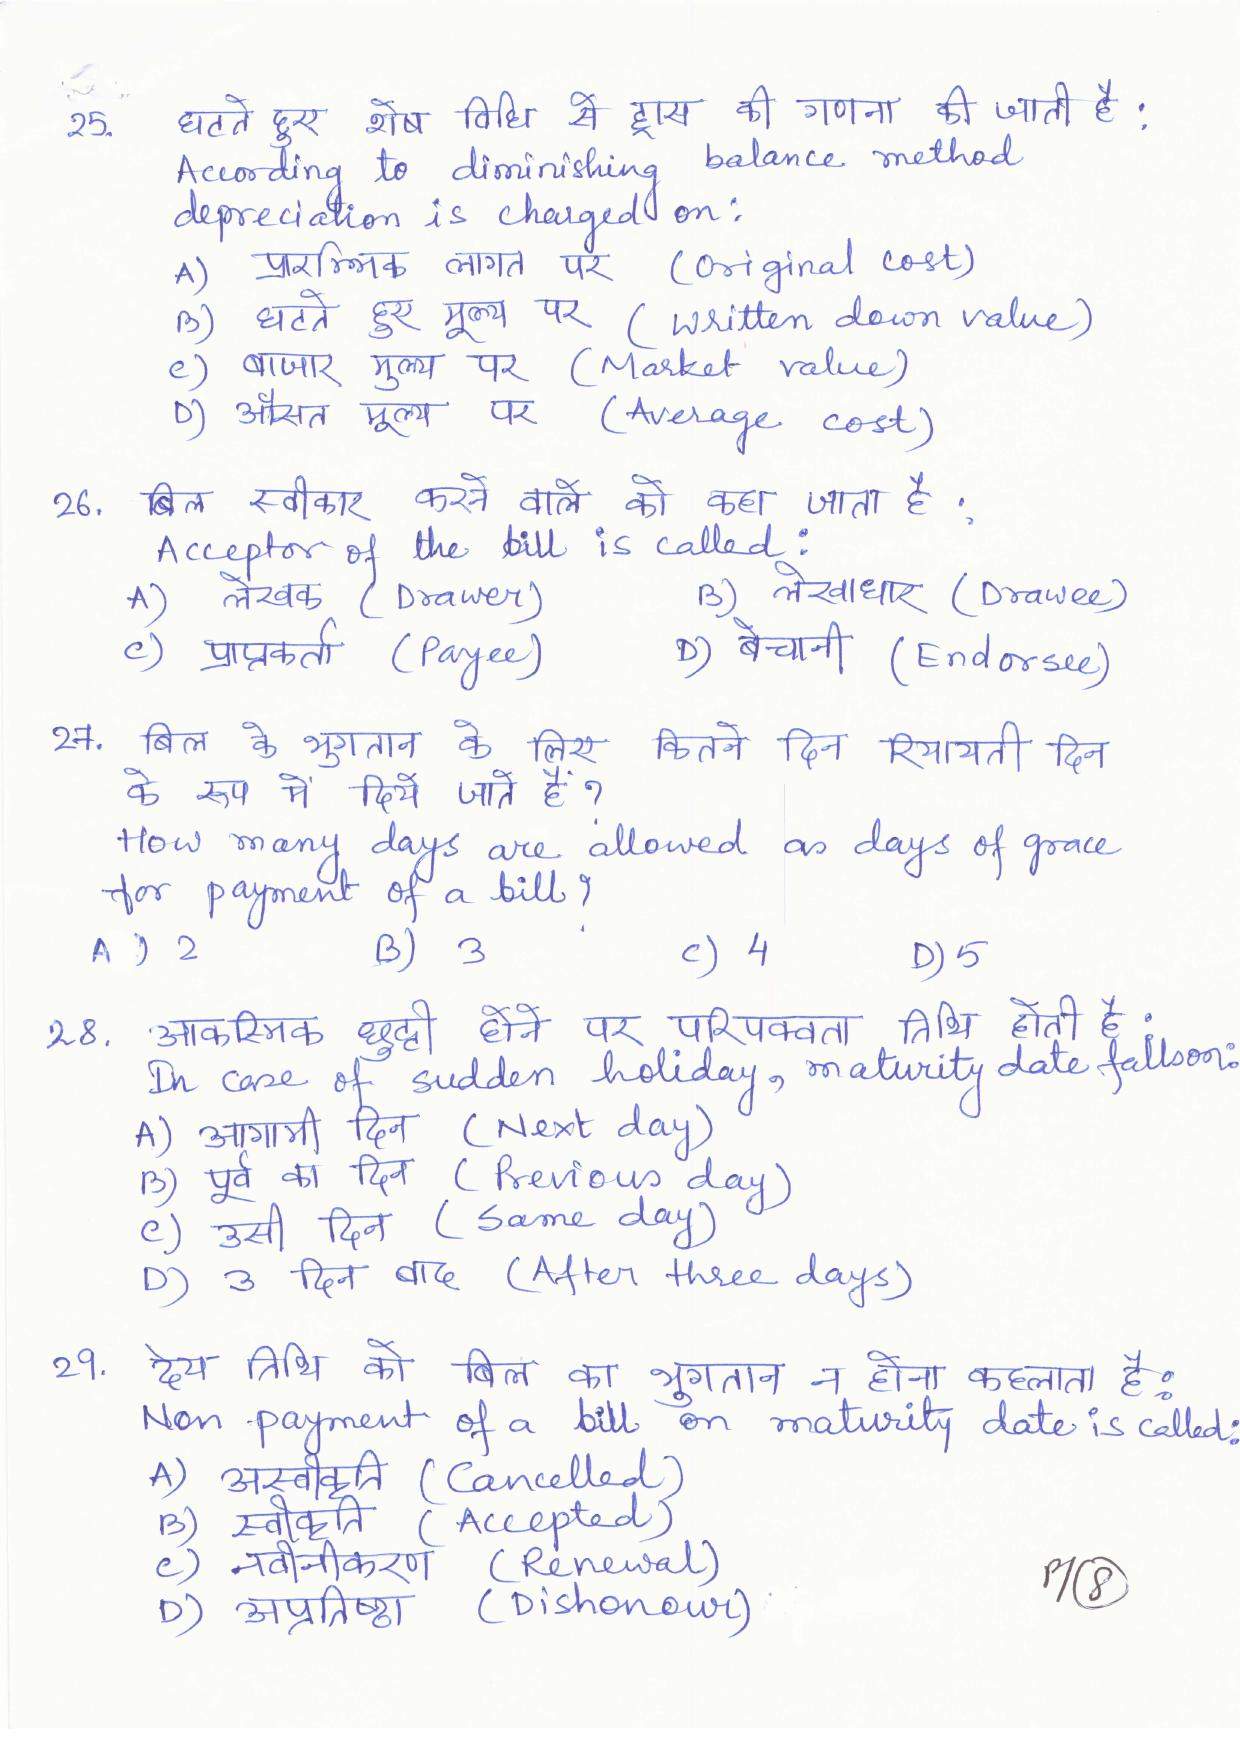 25. घटते हुए शेष विधि से ह्रास की गणना की जाती है :
According to diminishing balance method
depreciation is charged on :
A) प्रारम्भिक लागत पर (Original cost)
B) घटते हुए मूल्य पर (Written down value)
C) बाजार मुल्य पर (Market value)
D) औसत मूल्य पर (Average cost)
26. बिल स्वीकार करने वाले को कहा जाता है :
Acceptor of the bill is called :
A) लेखक (Drawer) B) लेखाधार (Drawee)
C) प्राप्तकर्ता (Payee) D) बेचानी (Endorsee)
27. बिल के भुगतान के लिए कितने दिन रियायती दिन
के रूप में दिये जाते हैं ?
How many days are allowed as days of grace
for payment of a bill ?
A) 2 B) 3 C) 4 D) 5
28. आकस्मिक छुट्टी होने पर परिपक्वता तिथि होती है :
In case of sudden holiday, maturity date falls on :
A) आगामी दिन (Next day)
B) पूर्व का दिन (Previous day)
C) उसी दिन (Same day)
D) 3 दिन बाद (After three days)
29. देय तिथि को बिल का भुगतान न होना कहलाता है :
Non payment of a bill on maturity date is called :
A) अस्वीकृति (Cancelled)
B) स्वीकृति (Accepted)
C) नवीनीकरण (Renewal)
D) अप्रतिष्ठा (Dishonour)
P/8